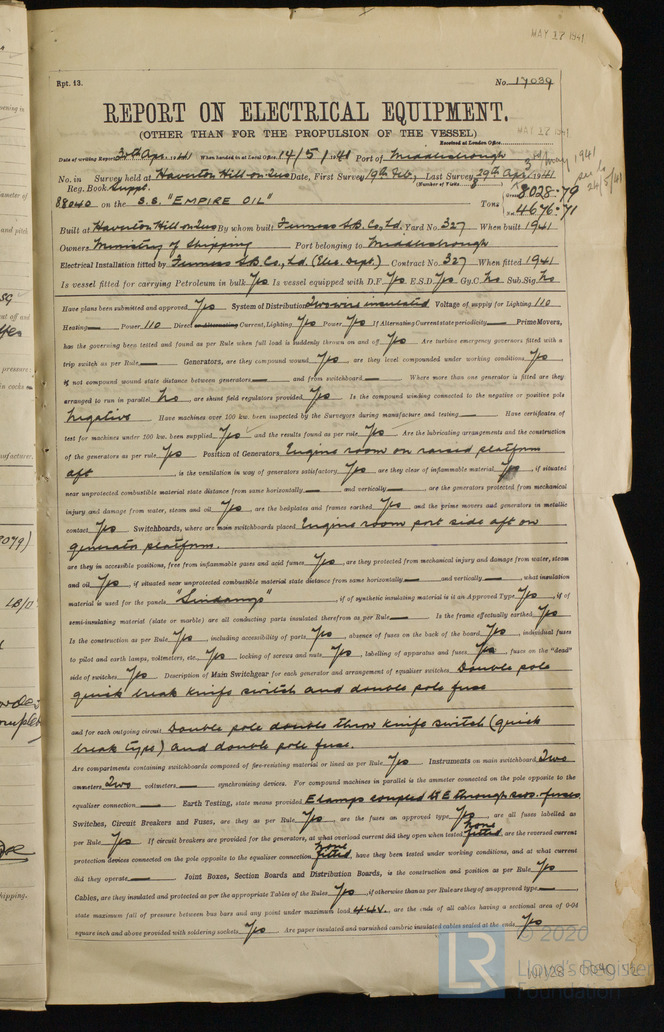 MAY 12 1941
Rpt. 13.
No. 17039
REPORT ON ELECTRICAL EQUIPMENT.
MAY 12 1941
(OTHER THAN FOR THE PROPULSION OF THE VESSEL)
Received at London Office
Date of writing Report 30th Apr. 1941 When handed in at Local Office 14/5/1941 Port of Middlesbrough 3rd May 1941
No. in Survey held at Haverton Hill on Tees Date, First Survey 19th Feb. Last Survey 29th Apr. 1941
Reg. Book. Suppt. (Number of Visits 8
24/5/41
88040 on the S.S. "EMPIRE OIL" Tons Gross 8028.79
Net 4676.71
Built at Haverton Hill on Tees By whom built Furness S.B. Co., Ld. Yard No. 327 When built 1941
Owners Ministry of Shipping Port belonging to Middlesbrough
Electrical Installation fitted by Furness S.B. Co., Ld. (Elec. Dept.) Contract No. 327 When fitted 1941
Is vessel fitted for carrying Petroleum in bulk Yes Is vessel equipped with D.F. Yes E.S.D. Yes Gy.C. No Sub.Sig. No
Have plans been submitted and approved Yes System of Distribution Two wire insulated Voltage of supply for Lighting 110
Heating — Power 110 Direct or Alternating Current, Lighting Yes Power Yes If Alternating Current state periodicity — Prime Movers,
has the governing been tested and found as per Rule when full load is suddenly thrown on and off Yes Are turbine emergency governors fitted with a
trip switch as per Rule — Generators, are they compound wound Yes, are they level compounded under working conditions Yes,
if not compound wound state distance between generators — and from switchboard — Where more than one generator is fitted are they
arranged to run in parallel No, are shunt field regulators provided Yes Is the compound winding connected to the negative or positive pole
Negative Have machines over 100 kw. been inspected by the Surveyors during manufacture and testing — Have certificates of
test for machines under 100 kw. been supplied Yes and the results found as per rule Yes Are the lubricating arrangements and the construction
of the generators as per rule Yes Position of Generators Engine room on raised platform
aft, is the ventilation in way of generators satisfactory Yes are they clear of inflammable material Yes, if situated
near unprotected combustible material state distance from same horizontally — and vertically —, are the generators protected from mechanical
injury and damage from water, steam and oil Yes, are the bedplates and frames earthed Yes, and the prime movers and generators in metallic
contact Yes Switchboards, where are main switchboards placed Engine room port side aft on
generator platform.
are they in accessible positions, free from inflammable gases and acid fumes Yes, are they protected from mechanical injury and damage from water, steam
and oil Yes, if situated near unprotected combustible material state distance from same horizontally — and vertically —, what insulation
material is used for the panels "Sindanyo", if of synthetic insulating material is it an Approved Type Yes, if of
semi-insulating material (slate or marble) are all conducting parts insulated therefrom as per Rule — Is the frame effectually earthed Yes
Is the construction as per Rule Yes, including accessibility of parts Yes, absence of fuses on the back of the board Yes, individual fuses
to pilot and earth lamps, voltmeters, etc. Yes locking of screws and nuts Yes, labelling of apparatus and fuses Yes, fuses on the "dead"
side of switches Yes Description of Main Switchgear for each generator and arrangement of equaliser switches Double pole
quick break knife switch and double pole fuse
and for each outgoing circuit Double pole double throw knife switch (quick
break type) and double pole fuse.
Are compartments containing switchboards composed of fire-resisting material or lined as per Rule Yes Instruments on main switchboard Two
ammeters Two voltmeters — synchronising devices. For compound machines in parallel is the ammeter connected on the pole opposite to the
equaliser connection — Earth Testing, state means provided E lamps coupled to E through sws. fuses
Switches, Circuit Breakers and Fuses, are they as per Rule Yes, are the fuses an approved type, Yes, are all fuses labelled as
per Rule Yes If circuit breakers are provided for the generators, at what overload current did they open when tested None fitted are the reversed current
protection devices connected on the pole opposite to the equaliser connection None fitted, have they been tested under working conditions, and at what current
did they operate — Joint Boxes, Section Boards and Distribution Boards, is the construction and position as per Rule Yes
Cables, are they insulated and protected as per the appropriate Tables of the Rules Yes, if otherwise than as per Rule are they of an approved type —,
state maximum fall of pressure between bus bars and any point under maximum load 4.4V. are the ends of all cables having a sectional area of 0.04
square inch and above provided with soldering sockets Yes Are paper insulated and varnished cambric insulated cables sealed at the ends Yes
© 2020
LR
Lloyd's Register
Foundation